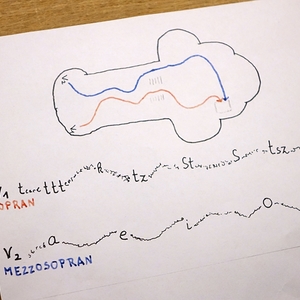 V1 t ttt k tz st s tsz
OPRAN
V2 a e i o
MEZZOSOPRAN